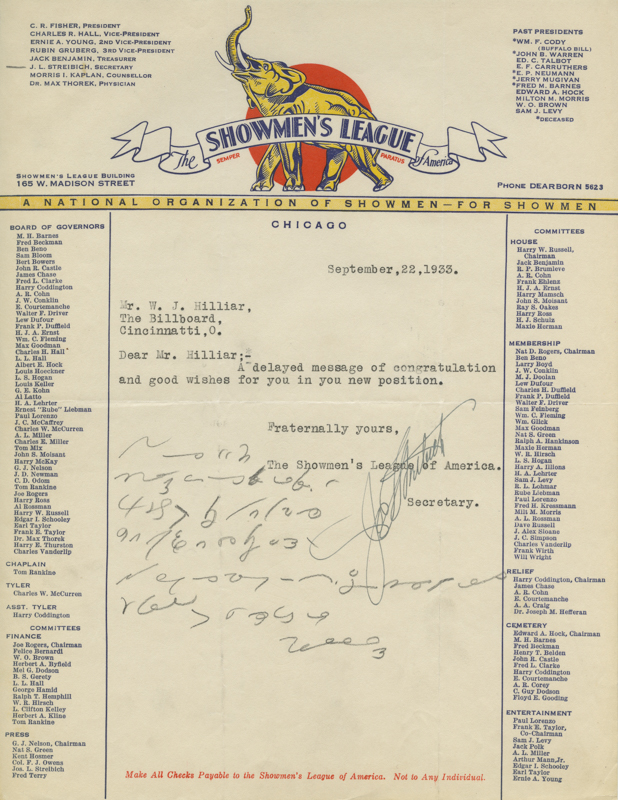 C. R. FISHER, PRESIDENT
CHARLES R. HALL, VICE-PRESIDENT
ERNIE A. YOUNG, 2ND VICE-PRESIDENT
RUBIN GRUBERG, 3RD VICE-PRESIDENT
JACK BENJAMIN, TREASURER
J. L. STREIBICH, SECRETARY
MORRIS I. KAPLAN, COUNSELLOR
DR. MAX THOREK, PHYSICIAN
PAST PRESIDENTS
*WM. F. CODY
(BUFFALO BILL)
*JOHN B. WARREN
ED. C. TALBOT
E. F. CARRUTHERS
*E. P. NEUMANN
*JERRY MUGIVAN
*FRED M. BARNES
EDWARD A. HOCK
MILTON M. MORRIS
W. O. BROWN
SAM J. LEVY
*DECEASED
The SHOWMEN'S LEAGUE of America
SEMPER PARATUS
SHOWMEN'S LEAGUE BUILDING
165 W. MADISON STREET
PHONE DEARBORN 5623
A NATIONAL ORGANIZATION OF SHOWMEN—FOR SHOWMEN
CHICAGO
BOARD OF GOVERNORS
M. H. Barnes
Fred Beckman
Ben Beno
Sam Bloom
Bert Bowers
John R. Castle
James Chase
Fred L. Clarke
Harry Coddington
A. R. Cohn
J. W. Conklin
E. Courtemanche
Walter F. Driver
Lew Dufour
Frank P. Duffield
H. J. A. Ernst
Wm. C. Fleming
Max Goodman
Charles H. Hall
L. L. Hall
Albert E. Hock
Louis Hoeckner
L. S. Hogan
Louis Keller
G. E. Kohn
Al Latto
H. A. Lehrter
Ernest "Rube" Liebman
Paul Lorenzo
J. C. McCaffrey
Charles W. McCurren
A. L. Miller
Charles E. Miller
Tom Mix
John S. Moisant
Harry McKay
G. J. Nelson
J. D. Newman
C. D. Odom
Tom Rankine
Joe Rogers
Harry Ross
Al Rossman
Harry W. Russell
Edgar I. Schooley
Earl Taylor
Frank E. Taylor
Dr. Max Thorek
Harry E. Thurston
Charles Vanderlip
CHAPLAIN
Tom Rankine
TYLER
Charles W. McCurren
ASST. TYLER
Harry Coddington
COMMITTEES
FINANCE
Joe Rogers, Chairman
Felice Bernardi
W. O. Brown
Herbert A. Byfield
Mel G. Dodson
B. S. Gerety
L. L. Hall
George Hamid
Ralph T. Hemphill
W. R. Hirsch
L. Clifton Kelley
Herbert A. Kline
Tom Rankine
PRESS
G. J. Nelson, Chairman
Nat S. Green
Kent Hosmer
Col. F. J. Owens
Jos. L. Streibich
Fred Terry
September,22,1933.
Mr. W. J. Hilliar,
The Billboard,
Cincinnatti,O.
Dear Mr. Hilliar;-
A delayed message of congratulation
and good wishes for you in you new position.
Fraternally yours,
The Showmen's League of America.
Secretary.
Make All Checks Payable to the Showmen's League of America. Not to Any Individual.
COMMITTEES
HOUSE
Harry W. Russell,
Chairman
Jack Benjamin
R. P. Brumleve
A. R. Cohn
Frank Ehlenz
H. J. A. Ernst
Harry Mamsch
John S. Moisant
Ray S. Oakes
Harry Ross
H. J. Schulz
Maxie Herman
MEMBERSHIP
Nat D. Rogers, Chairman
Ben Beno
Larry Boyd
J. W. Conklin
M. J. Doolan
Lew Dufour
Charles H. Duffield
Frank P. Duffield
Walter F. Driver
Sam Feinberg
Wm. C. Fleming
Wm. Glick
Max Goodman
Nat S. Green
Ralph A. Hankinson
Maxie Herman
W. R. Hirsch
L. S. Hogan
Harry A. Illions
H. A. Lehrter
Sam J. Levy
R. L. Lohmar
Rube Liebman
Paul Lorenzo
Fred H. Kressmann
Milt M. Morris
A. L. Rossman
Dave Russell
J. Alex Sloans
J. C. Simpson
Charles Vanderlip
Frank Wirth
Will Wright
RELIEF
Harry Coddington, Chairman
James Chase
A. R. Cohn
E. Courtemanche
A. A. Craig
Dr. Joseph M. Hefferan
CEMETERY
Edward A. Hock, Chairman
M. H. Barnes
Fred Beckman
Henry T. Belden
John R. Castle
Fred L. Clarke
Harry Coddington
E. Courtemanche
A. R. Corey
C. Guy Dodson
Floyd E. Gooding
ENTERTAINMENT
Paul Lorenzo
Frank E. Taylor,
Co-Chairman
Sam J. Levy
Jack Polk
A. L. Miller
Arthur Mann,Jr.
Edgar I. Schooley
Earl Taylor
Ernie A. Young